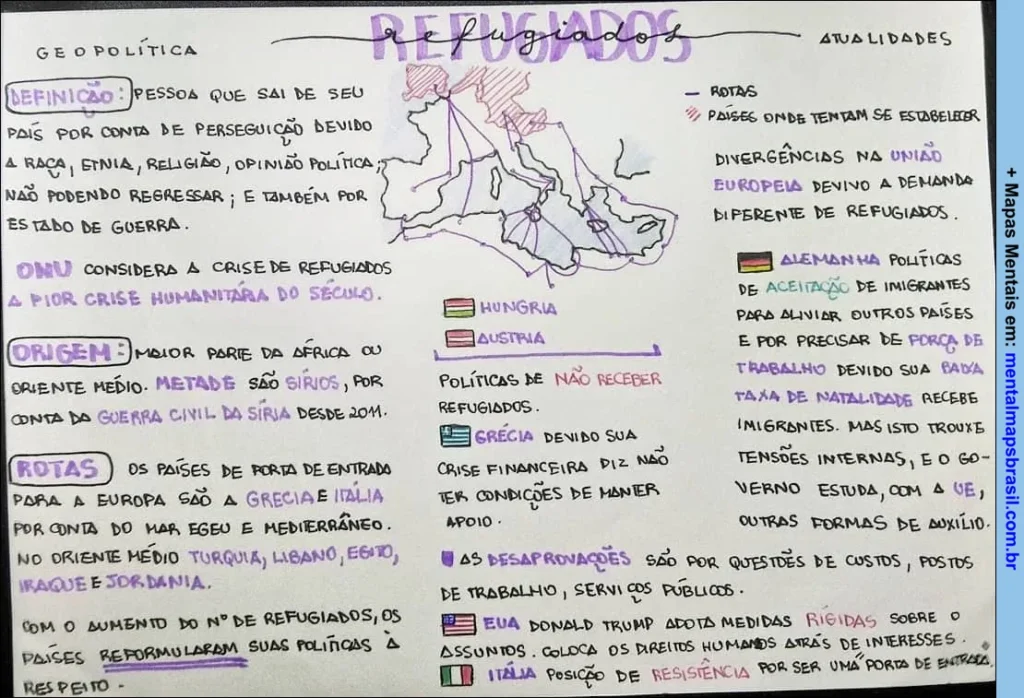 GEOPOLÍTICA
REFUGIADOS
refugiados
ATUALIDADES
DEFINIÇÃO: PESSOA QUE SAI DE SEU
PAÍS POR CONTA DE PERSEGUIÇÃO DEVIDO
A RAÇA, ETNIA, RELIGIÃO, OPINIÃO POLÍTICA,
NÃO PODENDO REGRESSAR; E TAMBÉM POR
ESTADO DE GUERRA.
ONU CONSIDERA A CRISE DE REFUGIADOS
A PIOR CRISE HUMANITÁRIA DO SÉCULO.
ORIGEM: MAIOR PARTE DA ÁFRICA OU
ORIENTE MÉDIO. METADE SÃO SÍRIOS, POR
CONTA DA GUERRA CIVIL DA SÍRIA DESDE 2011.
ROTAS OS PAÍSES DE PORTA DE ENTRADA
PARA A EUROPA SÃO A GRECIA E ITÁLIA
POR CONTA DO MAR EGEU E MEDITERRÂNEO.
NO ORIENTE MÉDIO TURQUIA, LIBANO, EGITO,
IRAQUE E JORDANIA.
COM O AUMENTO DO Nº DE REFUGIADOS, OS
PAÍSES REFORMULARAM SUAS POLÍTICAS À
RESPEITO.
HUNGRIA
AUSTRIA
POLÍTICAS DE NÃO RECEBER
REFUGIADOS.
GRÉCIA DEVIDO SUA
CRISE FINANCEIRA DIZ NÃO
TER CONDIÇÕES DE MANTER
APOIO.
ROTAS
PAÍSES ONDE TENTAM SE ESTABELECER
DIVERGÊNCIAS NA UNIÃO
EUROPEIA DEVIVO A DEMANDA
DIFERENTE DE REFUGIADOS.
ALEMANHA POLÍTICAS
DE ACEITAÇÃO DE IMIGRANTES
PARA ALIVIAR OUTROS PAÍSES
E POR PRECISAR DE FORÇA DE
TRABALHO DEVIDO SUA BAIXA
TAXA DE NATALIDADE RECEBE
IMIGRANTES. MAS ISTO TROUXE
TENSÕES INTERNAS, E O GO-
VERNO ESTUDA, COM A UE,
OUTRAS FORMAS DE AUXÍLIO.
AS DESAPROVAÇÕES SÃO POR QUESTÕES DE CUSTOS, POSTOS
DE TRABALHO, SERVIÇOS PÚBLICOS.
EUA DONALD TRUMP ADOTA MEDIDAS RÍGIDAS SOBRE O
ASSUNTOS. COLOCA OS DIREITOS HUMANOS ATRÁS DE INTERESSES.
ITÁLIA POSIÇÃO DE RESISTÊNCIA POR SER UMA PORTA DE ENTRADA.
+ Mapas Mentais em: mentalmapsbrasil.com.br